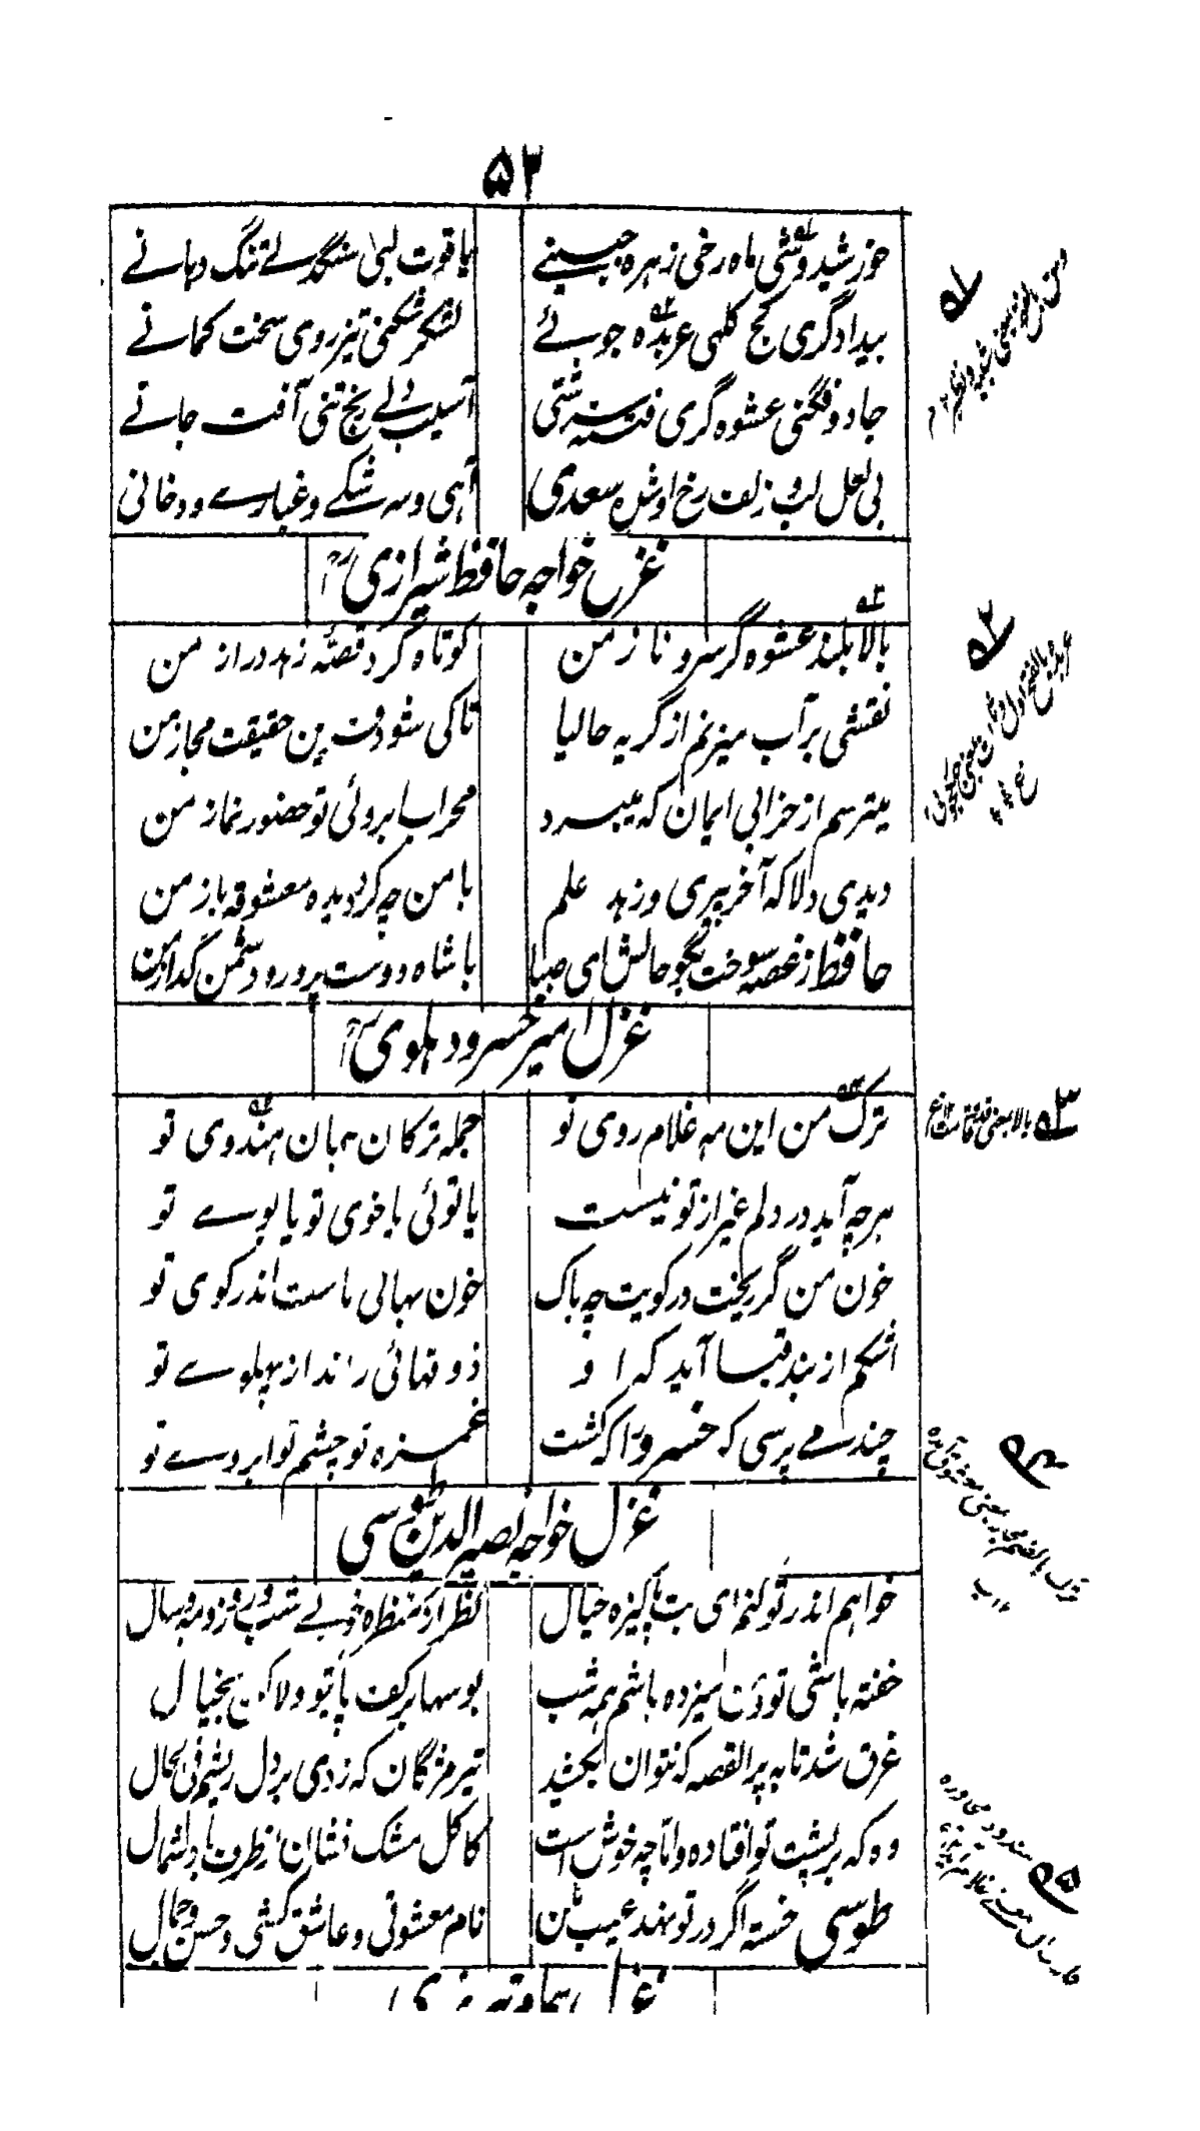 ۵۲
خورشید وشی ماه رخی زهره جبینے یاقوت لبی سنگدلے تنگ دہانے
بیدادگری کج کلهی عربده جوئے لشکر شکنی تیز روی سخت کمانے
جادو فگنی عشوه گری فتنه پرستی آسیب دلے رنج تنی آفت جانے
بی لعل لب و زلف رخ اوش سعدی آہی و سرشکے و غبارے و دخانی
غزل خواجه حافظ شیرازی رح
بالا بلند عشوه گر سرو ناز من کوتاه کرد قصۂ زہد دراز من
نقشی بر آب میزنم از گریه حالیا تا کی شود قرین حقیقت مجاز من
میترسم از خرابی ایمان که میبرد محراب ابروئی تو حضور نماز من
دیدی دلا که آخر پیری و زہد علم با من چه کرد دیده معشوقه باز من
حافظ ز غصه سوخت بگو حالش ای صبا با شاه دوست پرور و دشمن گداز من
غزل امیر خسرو دہلوی رح
ترک من این مه غلام روی تو جمله ترکان جہان ہندوی تو
ہرچه آید در دلم غیر از تو نیست یا توئی یا خوی تو یا بوے تو
خون من گر ریخت در کویت چه باک خون بہائی ماست اندر کوی تو
اشکم از بند قبا آید که او ذوقہائی راند از پہلوے تو
چند مے پرسی که خسرو را کشت غمزه تو چشم تو ابروے تو
غزل خواجه نصیر الدین طوسی
خواہم اندر تو کنم ای بت پاکیزه خیال نظر از منظره خوبے شب و روز و مه و سال
خفته باشی تو و من میزده باشم ہمه شب بوسہا بر کف پا تو ولاکن بخیال
غرق شد تا به پر القصه که نتوان بکشید تیر مژگان که زدی بر دل ریشم فی الحال
وه که بر پشت تو افتاده و تا چه خوش است کاکل مشک فشان از طرف باد شمال
طوسی خسته اگر در تو نہد عیب مکن نام معشوقی و عاشق کشی و حسن و جمال